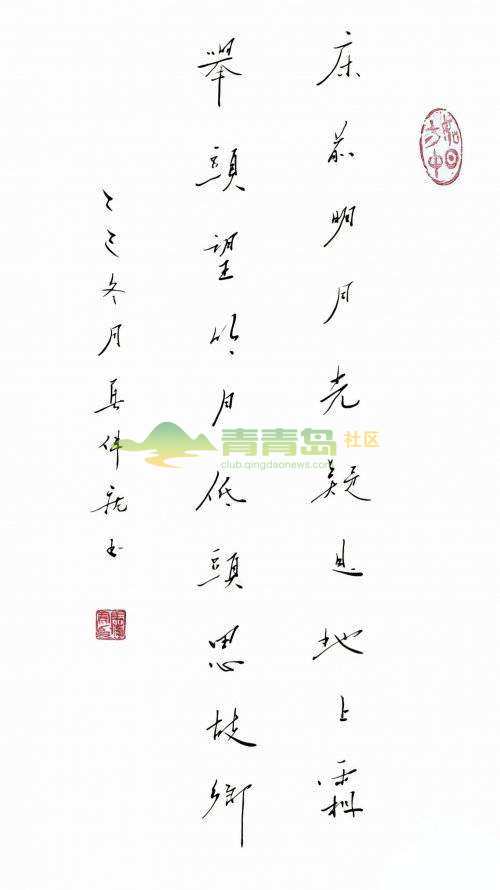 床前明月光疑是地上霜
舉頭望明月低頭思故鄉
乙巳冬月真伴龍书
青青岛社区
club.qingdaonews.com